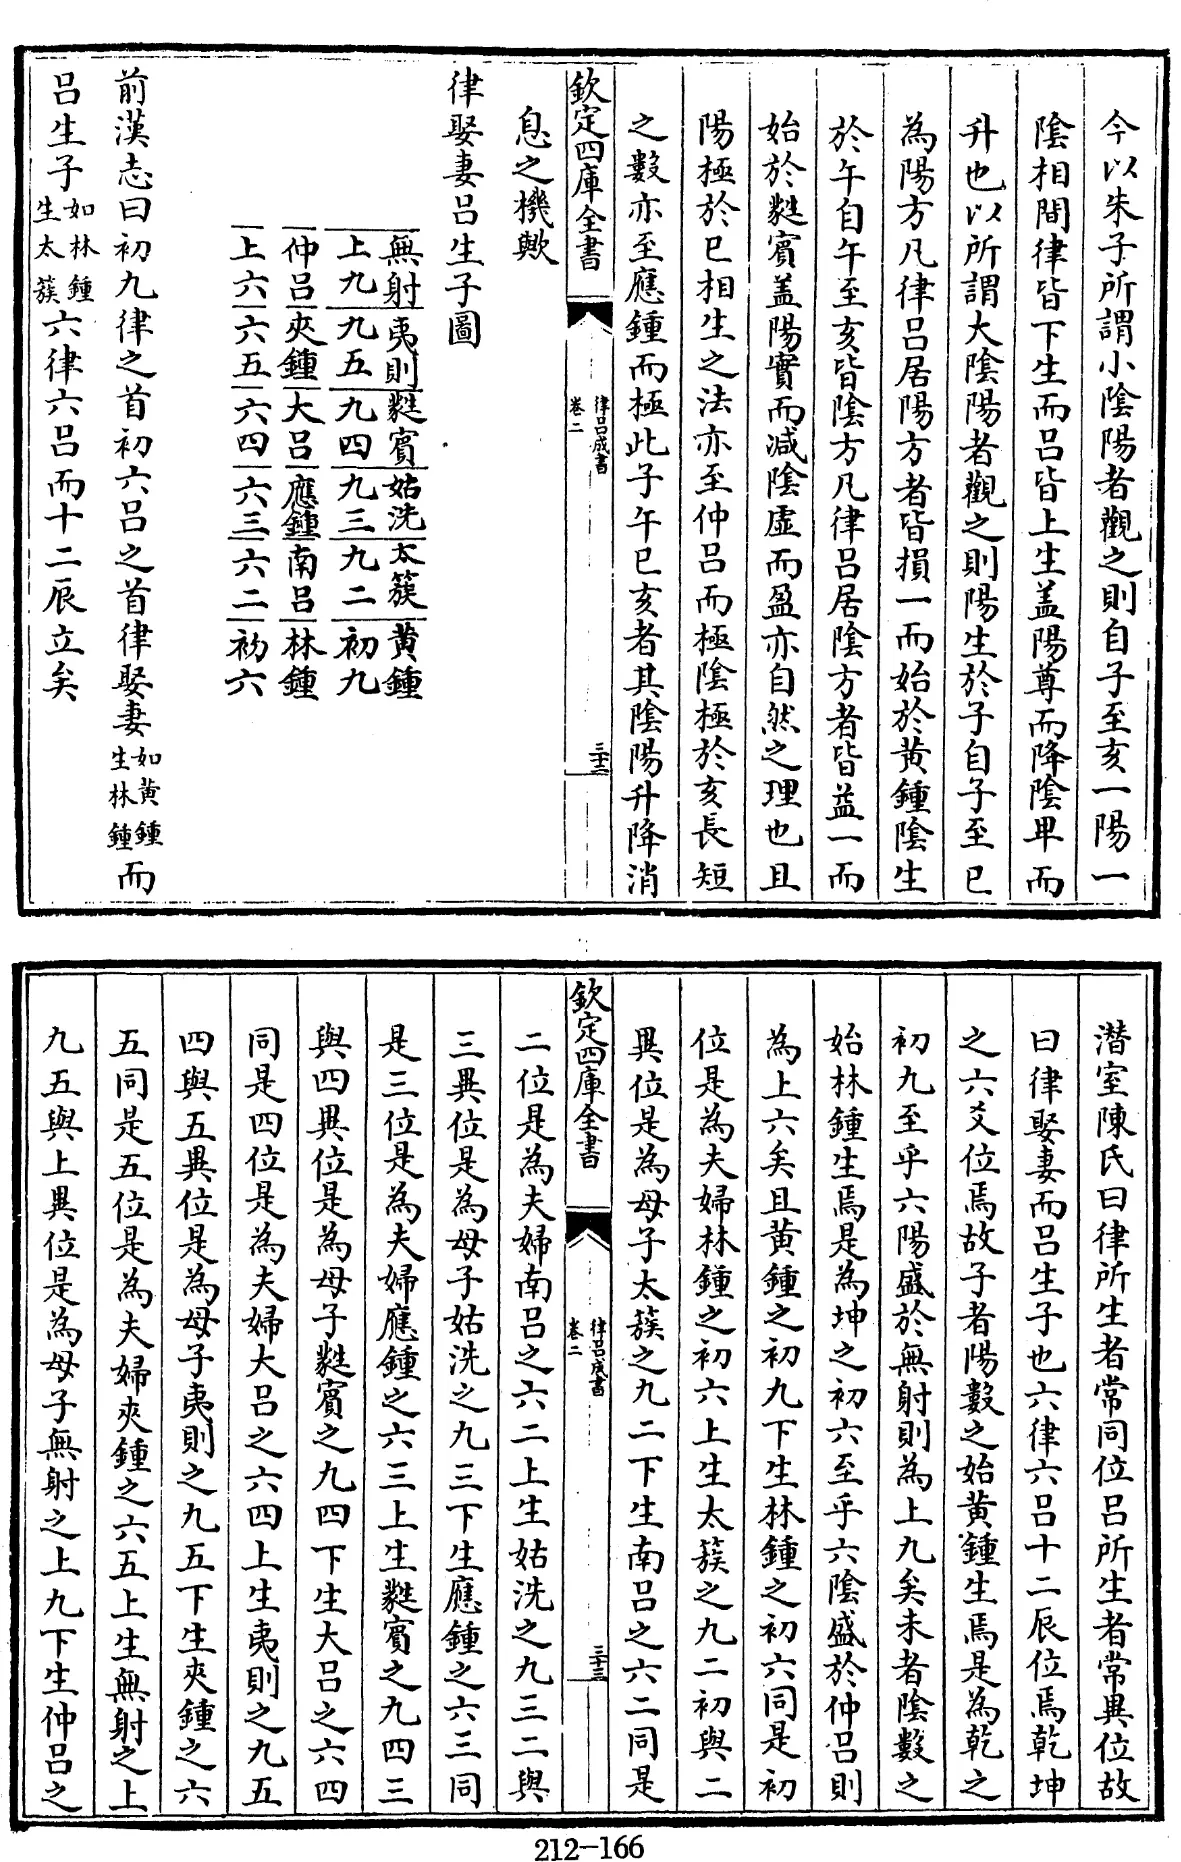 今以朱子所謂小陰陽者觀之則自子至亥一陽一
陰相間律皆下生而呂皆上生盖陽尊而降陰卑而
升也以所謂大陰陽者觀之則陽生於子自子至巳
為陽方凡律呂居陽方者皆損一而始於黄鍾陰生
於午自午至亥皆陰方凡律呂居陰方者皆益一而
始於蕤賓盖陽實而减陰虛而盈亦自然之理也且
陽極於巳相生之法亦至仲呂而極陰極於亥長短
之數亦至應鍾而極此子午巳亥者其陰陽升降消
欽定四庫全書
律呂成書
卷二
三十二
息之機歟
律娶妻呂生子圖
無射 夷則 蕤賓 姑洗 太簇 黄鍾
上九 九五 九四 九三 九二 初九
仲呂 夾鍾 大呂 應鍾 南呂 林鍾
上六 六五 六四 六三 六二 初六
前漢志曰初九律之首初六呂之首律娶妻如黄鍾生林鍾而
呂生子如林鍾生太蔟六律六呂而十二辰立矣
潛室陳氏曰律所生者常同位呂所生者常異位故
曰律娶妻而呂生子也六律六呂十二辰位焉乾坤
之六爻位焉故子者陽數之始黄鍾生焉是為乾之
初九至乎六陽盛於無射則為上九矣未者陰數之
始林鍾生焉是為坤之初六至乎六陰盛於仲呂則
為上六矣且黄鍾之初九下生林鍾之初六同是初
位是為夫婦林鍾之初六上生太蔟之九二初與二
異位是為母子太蔟之九二下生南呂之六二同是
欽定四庫全書
律呂成書
卷二
三十三
二位是為夫婦南呂之六二上生姑洗之九三二與
三異位是為母子姑洗之九三下生應鍾之六三同
是三位是為夫婦應鍾之六三上生蕤賓之九四三
與四異位是為母子蕤賓之九四下生大呂之六四
同是四位是為夫婦大呂之六四上生夷則之九五
四與五異位是為母子夷則之九五下生夾鍾之六
五同是五位是為夫婦夾鍾之六五上生無射之上
九五與上異位是為母子無射之上九下生仲呂之
212-166